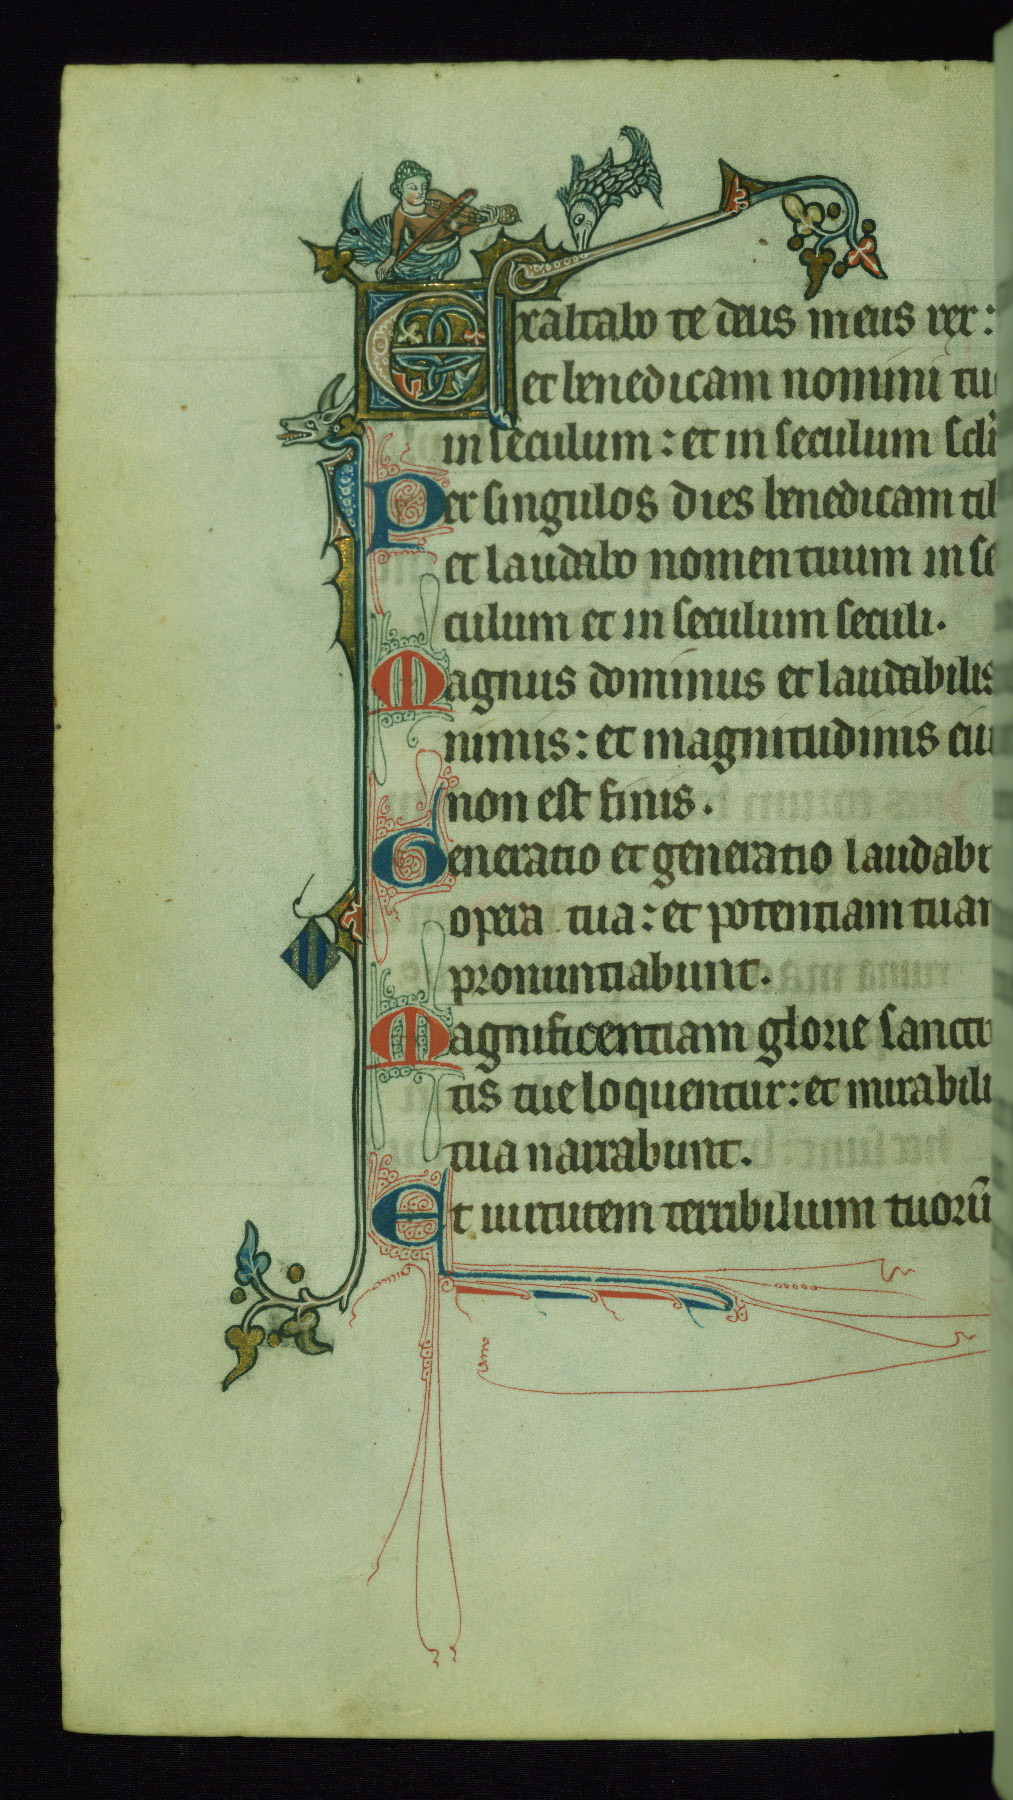 Exaltabo te deus meus rex:
et benedicam nomini tu
in seculum: et in seculum scli
Per singulos dies benedicam tib
et laudabo nomen tuum in se
culum et in seculum seculi.
Magnus dominus et laudabilis
nimis: et magnitudinis eiu
non est finis.
Generatio et generatio laudabi
opera tua: et potentiam tuam
pronuntiabunt.
Magnificentiam glorie sancti
tis tue loquentur: et mirabili
tua narrabunt.
Et uirtutem terribilium tuorū